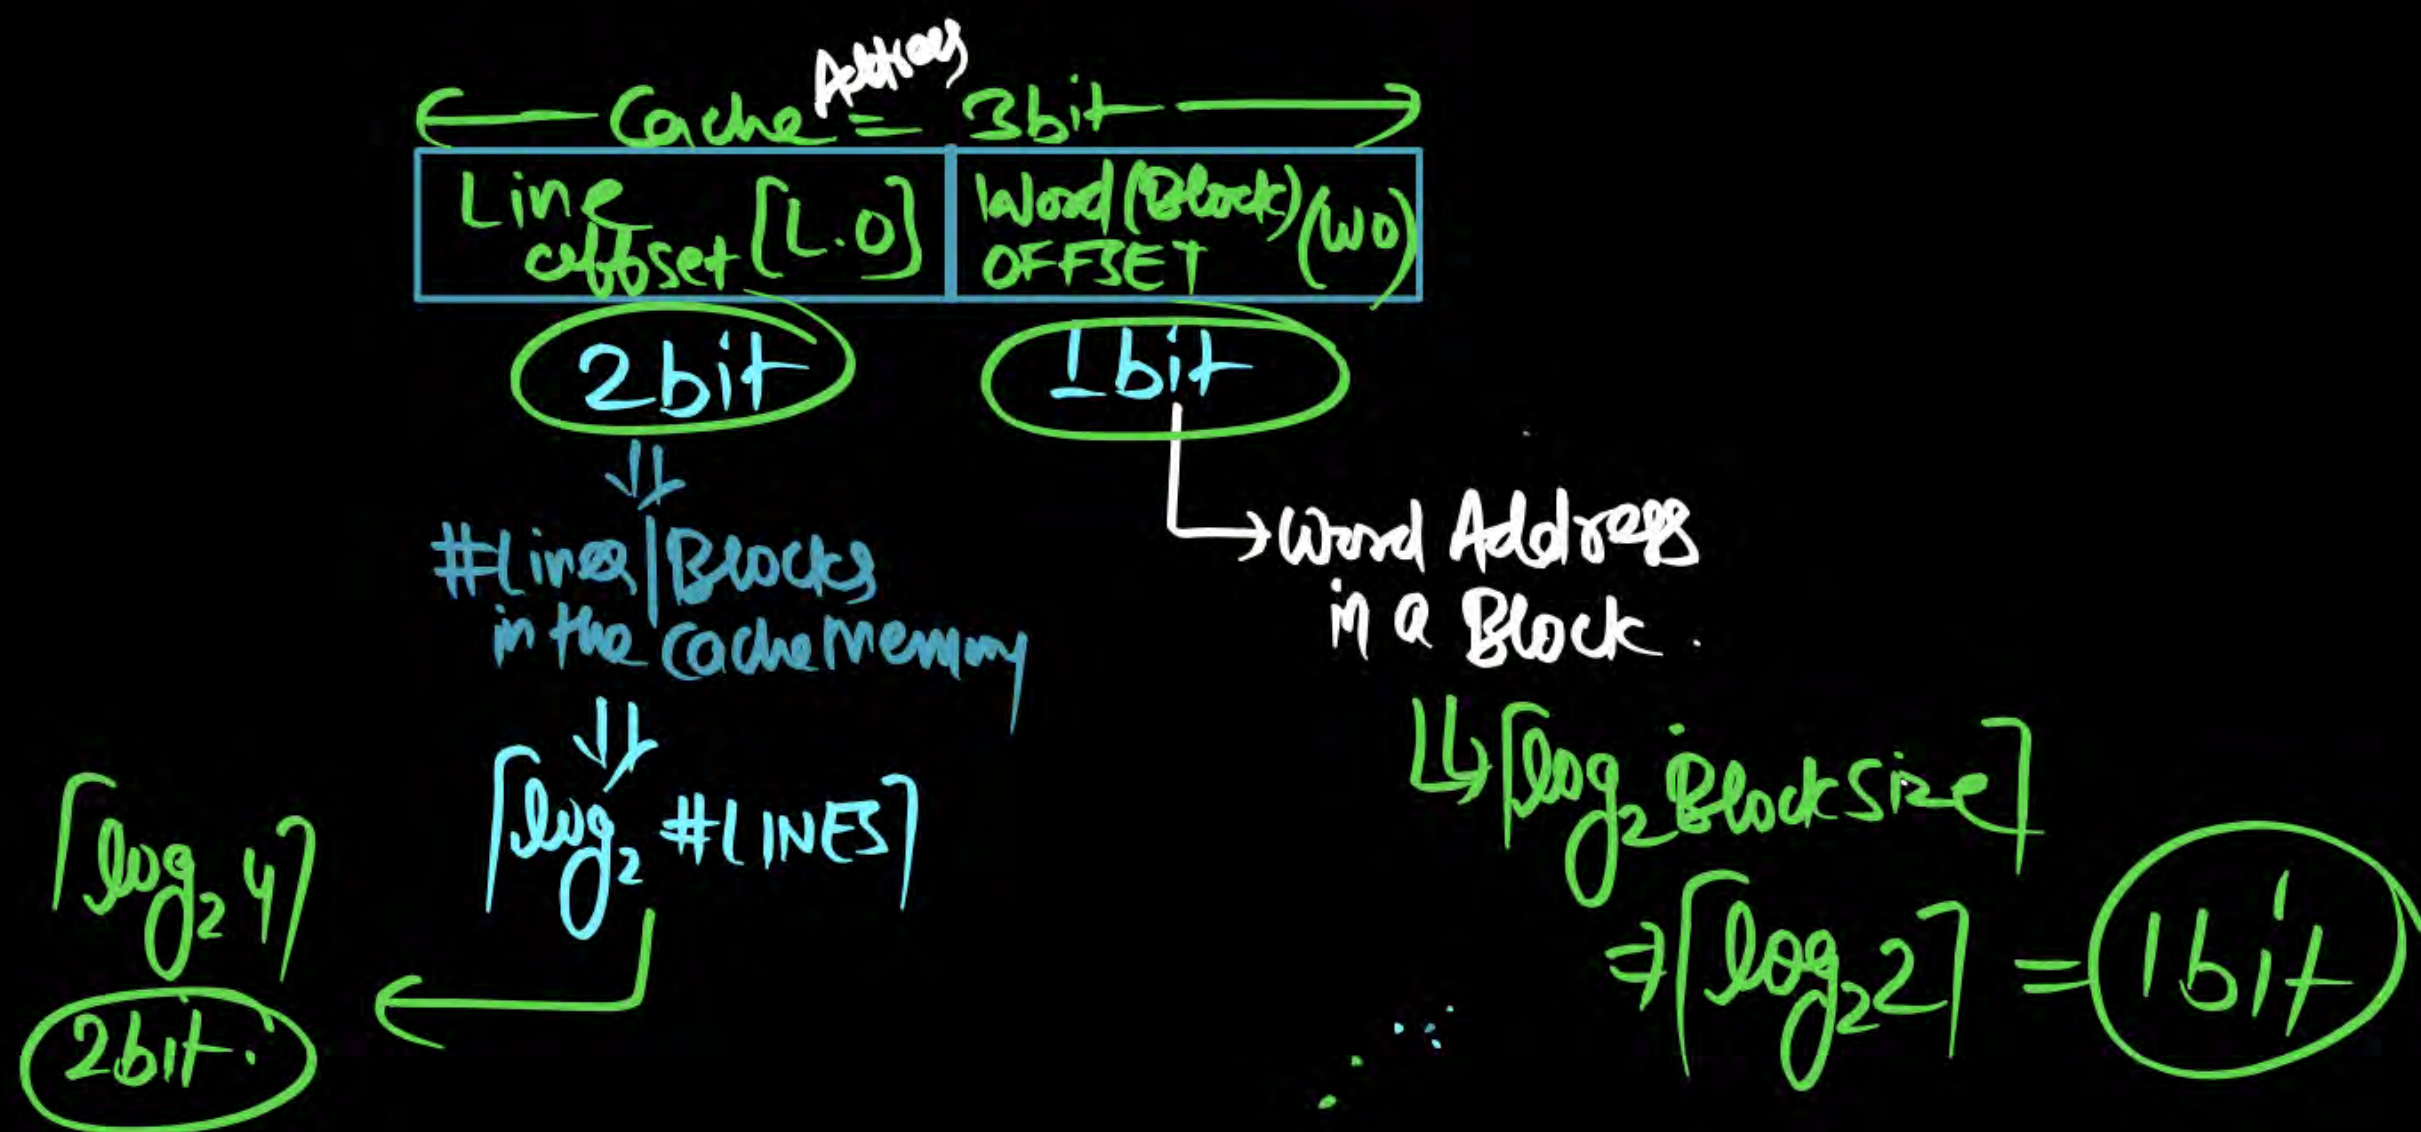 Address
Cache = 3bit
Line offset [L.O]
Word (Block) OFFSET (WO)
2bit
1bit
#Lines | Blocks
in the Cache Memory
⌈log₂ #LINES⌉
⌈log₂ 4⌉
2bit.
Word Address
in a Block.
⌈log₂ Block Size⌉
⇒ ⌈log₂ 2⌉ = 1bit